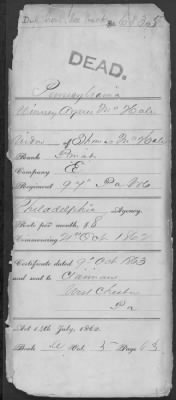 DEAD.
Pennsylvania
Winney Agnes McHale
Widow of Thomas McHale
Rank Private
Company E
Regiment 97" Pa Vols
Philadelphia Agency.
Rate per month, $8
Commencing 21st Oct 1862
Certificate dated 9" Oct 1863
and sent to Claimant
West Chester
Pa
Act 14th July, 1862.
Book Vol. 3 Page 63